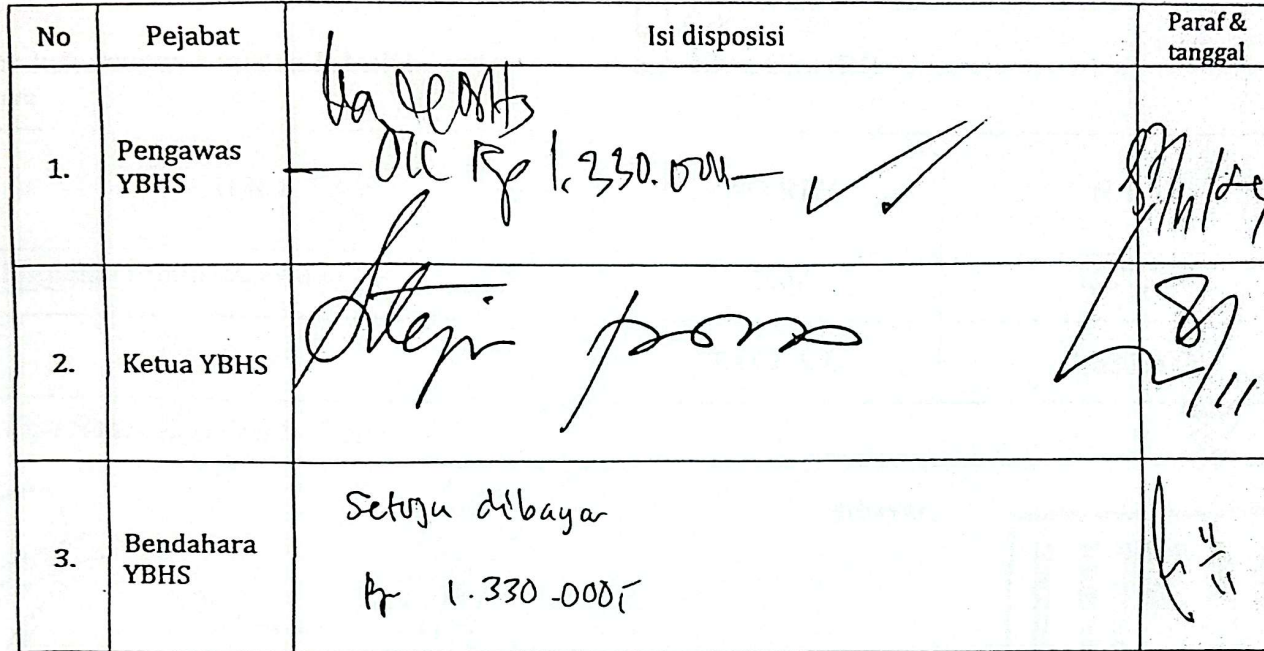 No Pejabat Isi disposisi Paraf & tanggal
1. Pengawas YBHS
ACC Rp 1.330.000,-
2. Ketua YBHS
8/11
3. Bendahara YBHS
Setuju dibayar
Rp 1.330.000,-
11/11